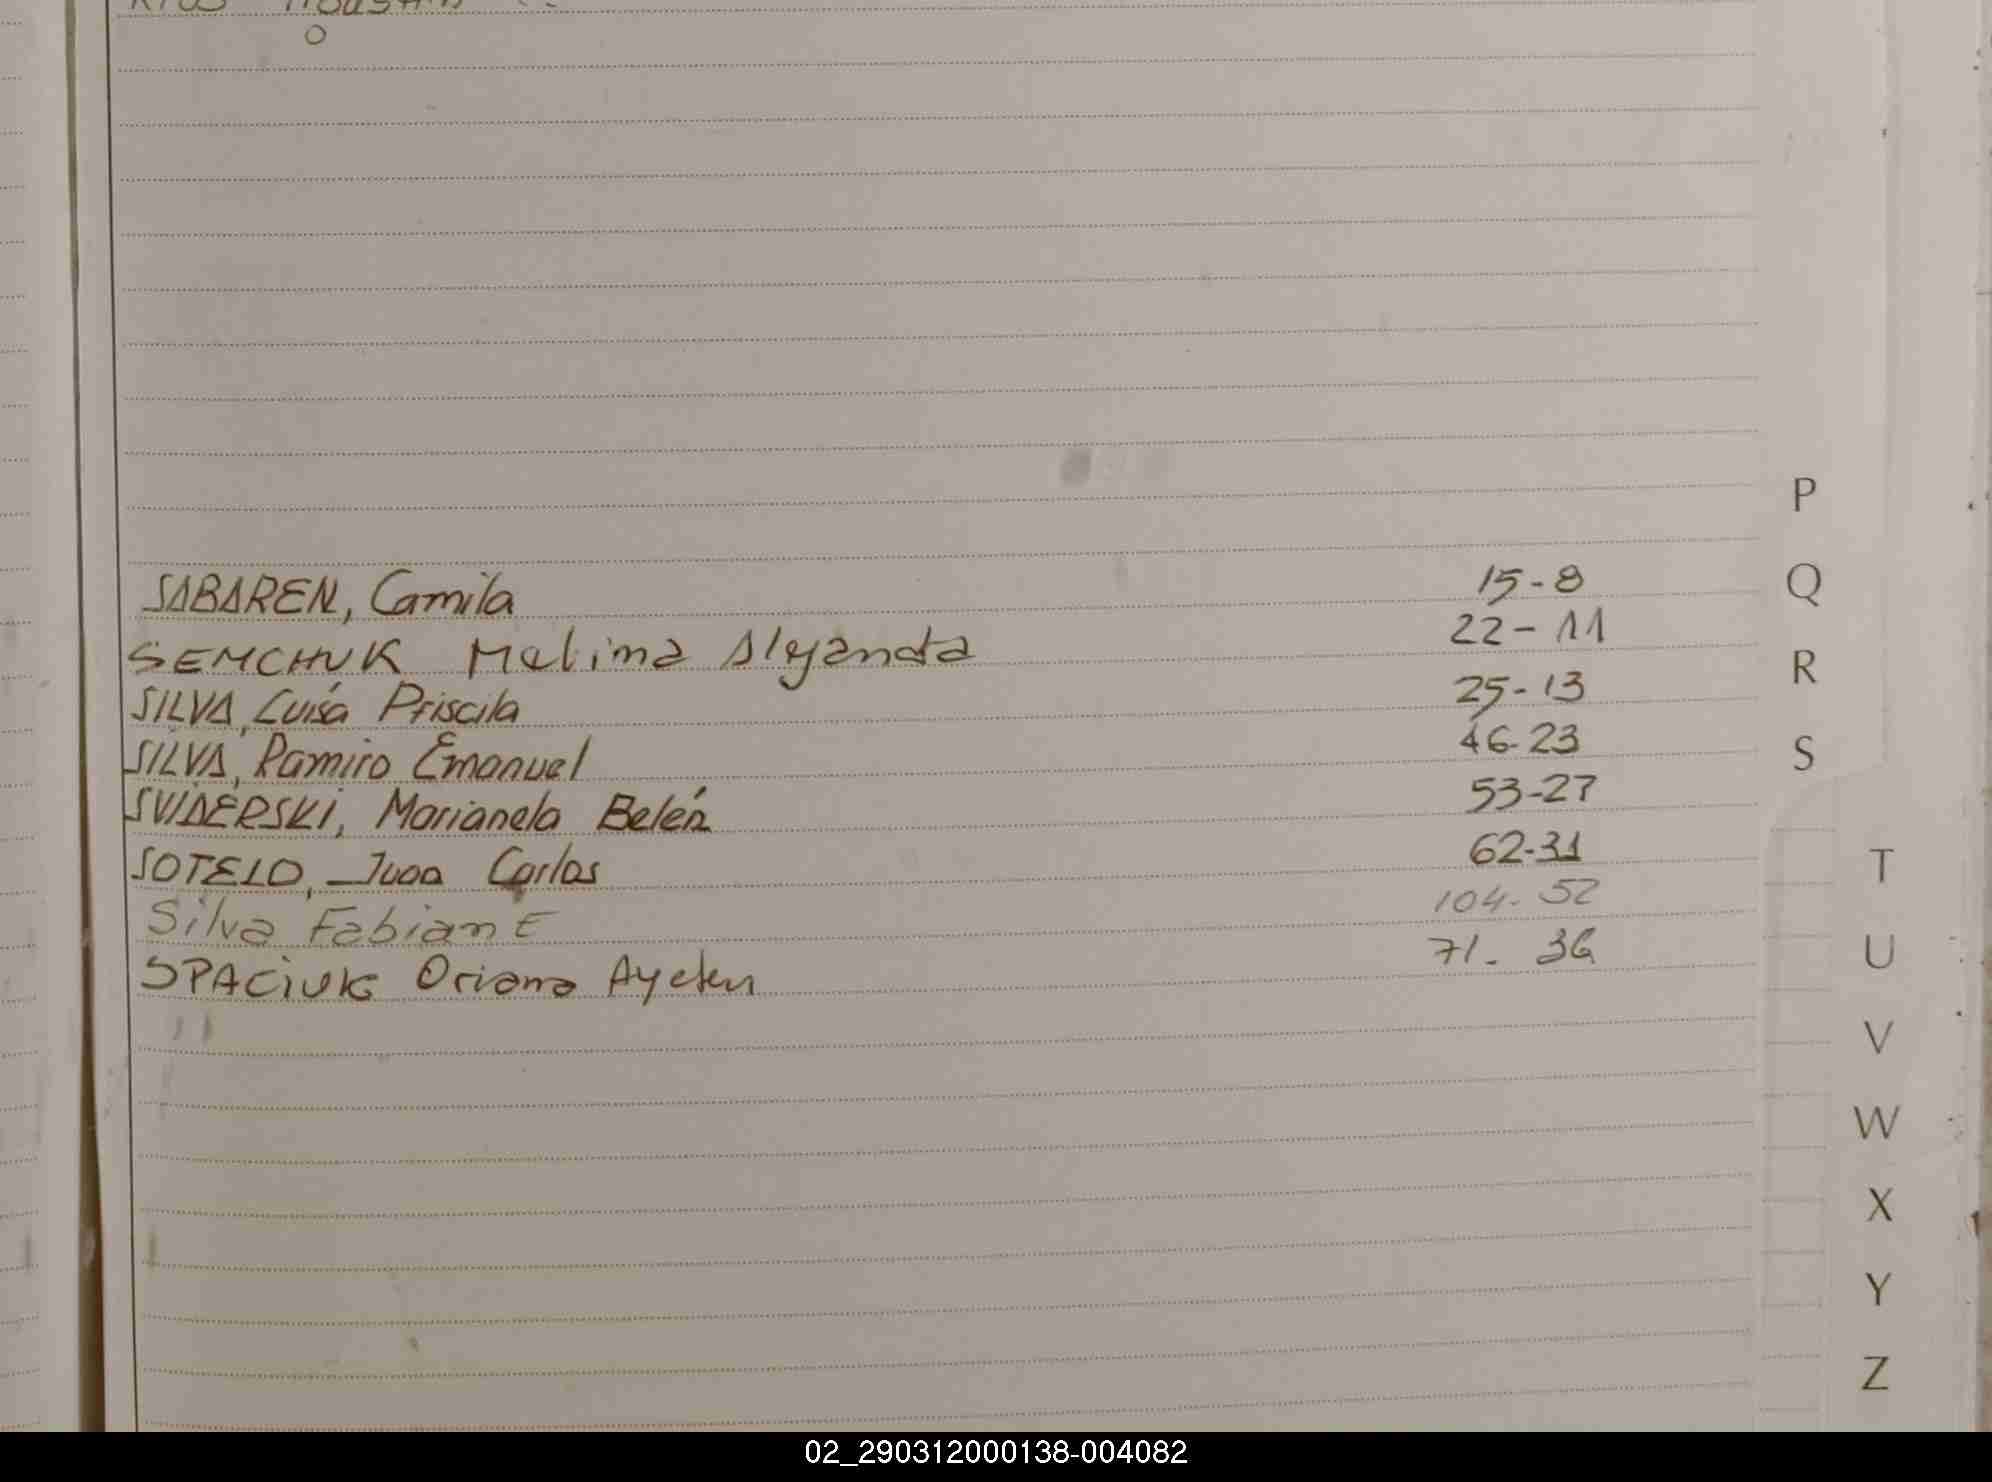 SABAREN, Camila 15-8
SEMCHUK Melina Alejandra 22-11
SILVA, Luisa Priscila 25-13
SILVA, Ramiro Emanuel 46-23
SVIDERSKI, Marianela Belén 53-27
SOTELO, Juan Carlos 62-31
Silva Fabian E 104-52
SPACiUK Oriana Ayelen 71-36
P
Q
R
S
T
U
V
W
X
Y
Z
02_290312000138-004082